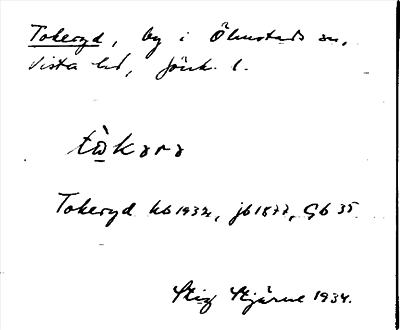 Tokeryd, by i Ölmstads sn,
Vista hd, Jönk. l.
tò̠kərə
Tokeryd hb 1932, jb 1877, Gb 35
Stig Stjärne 1934.